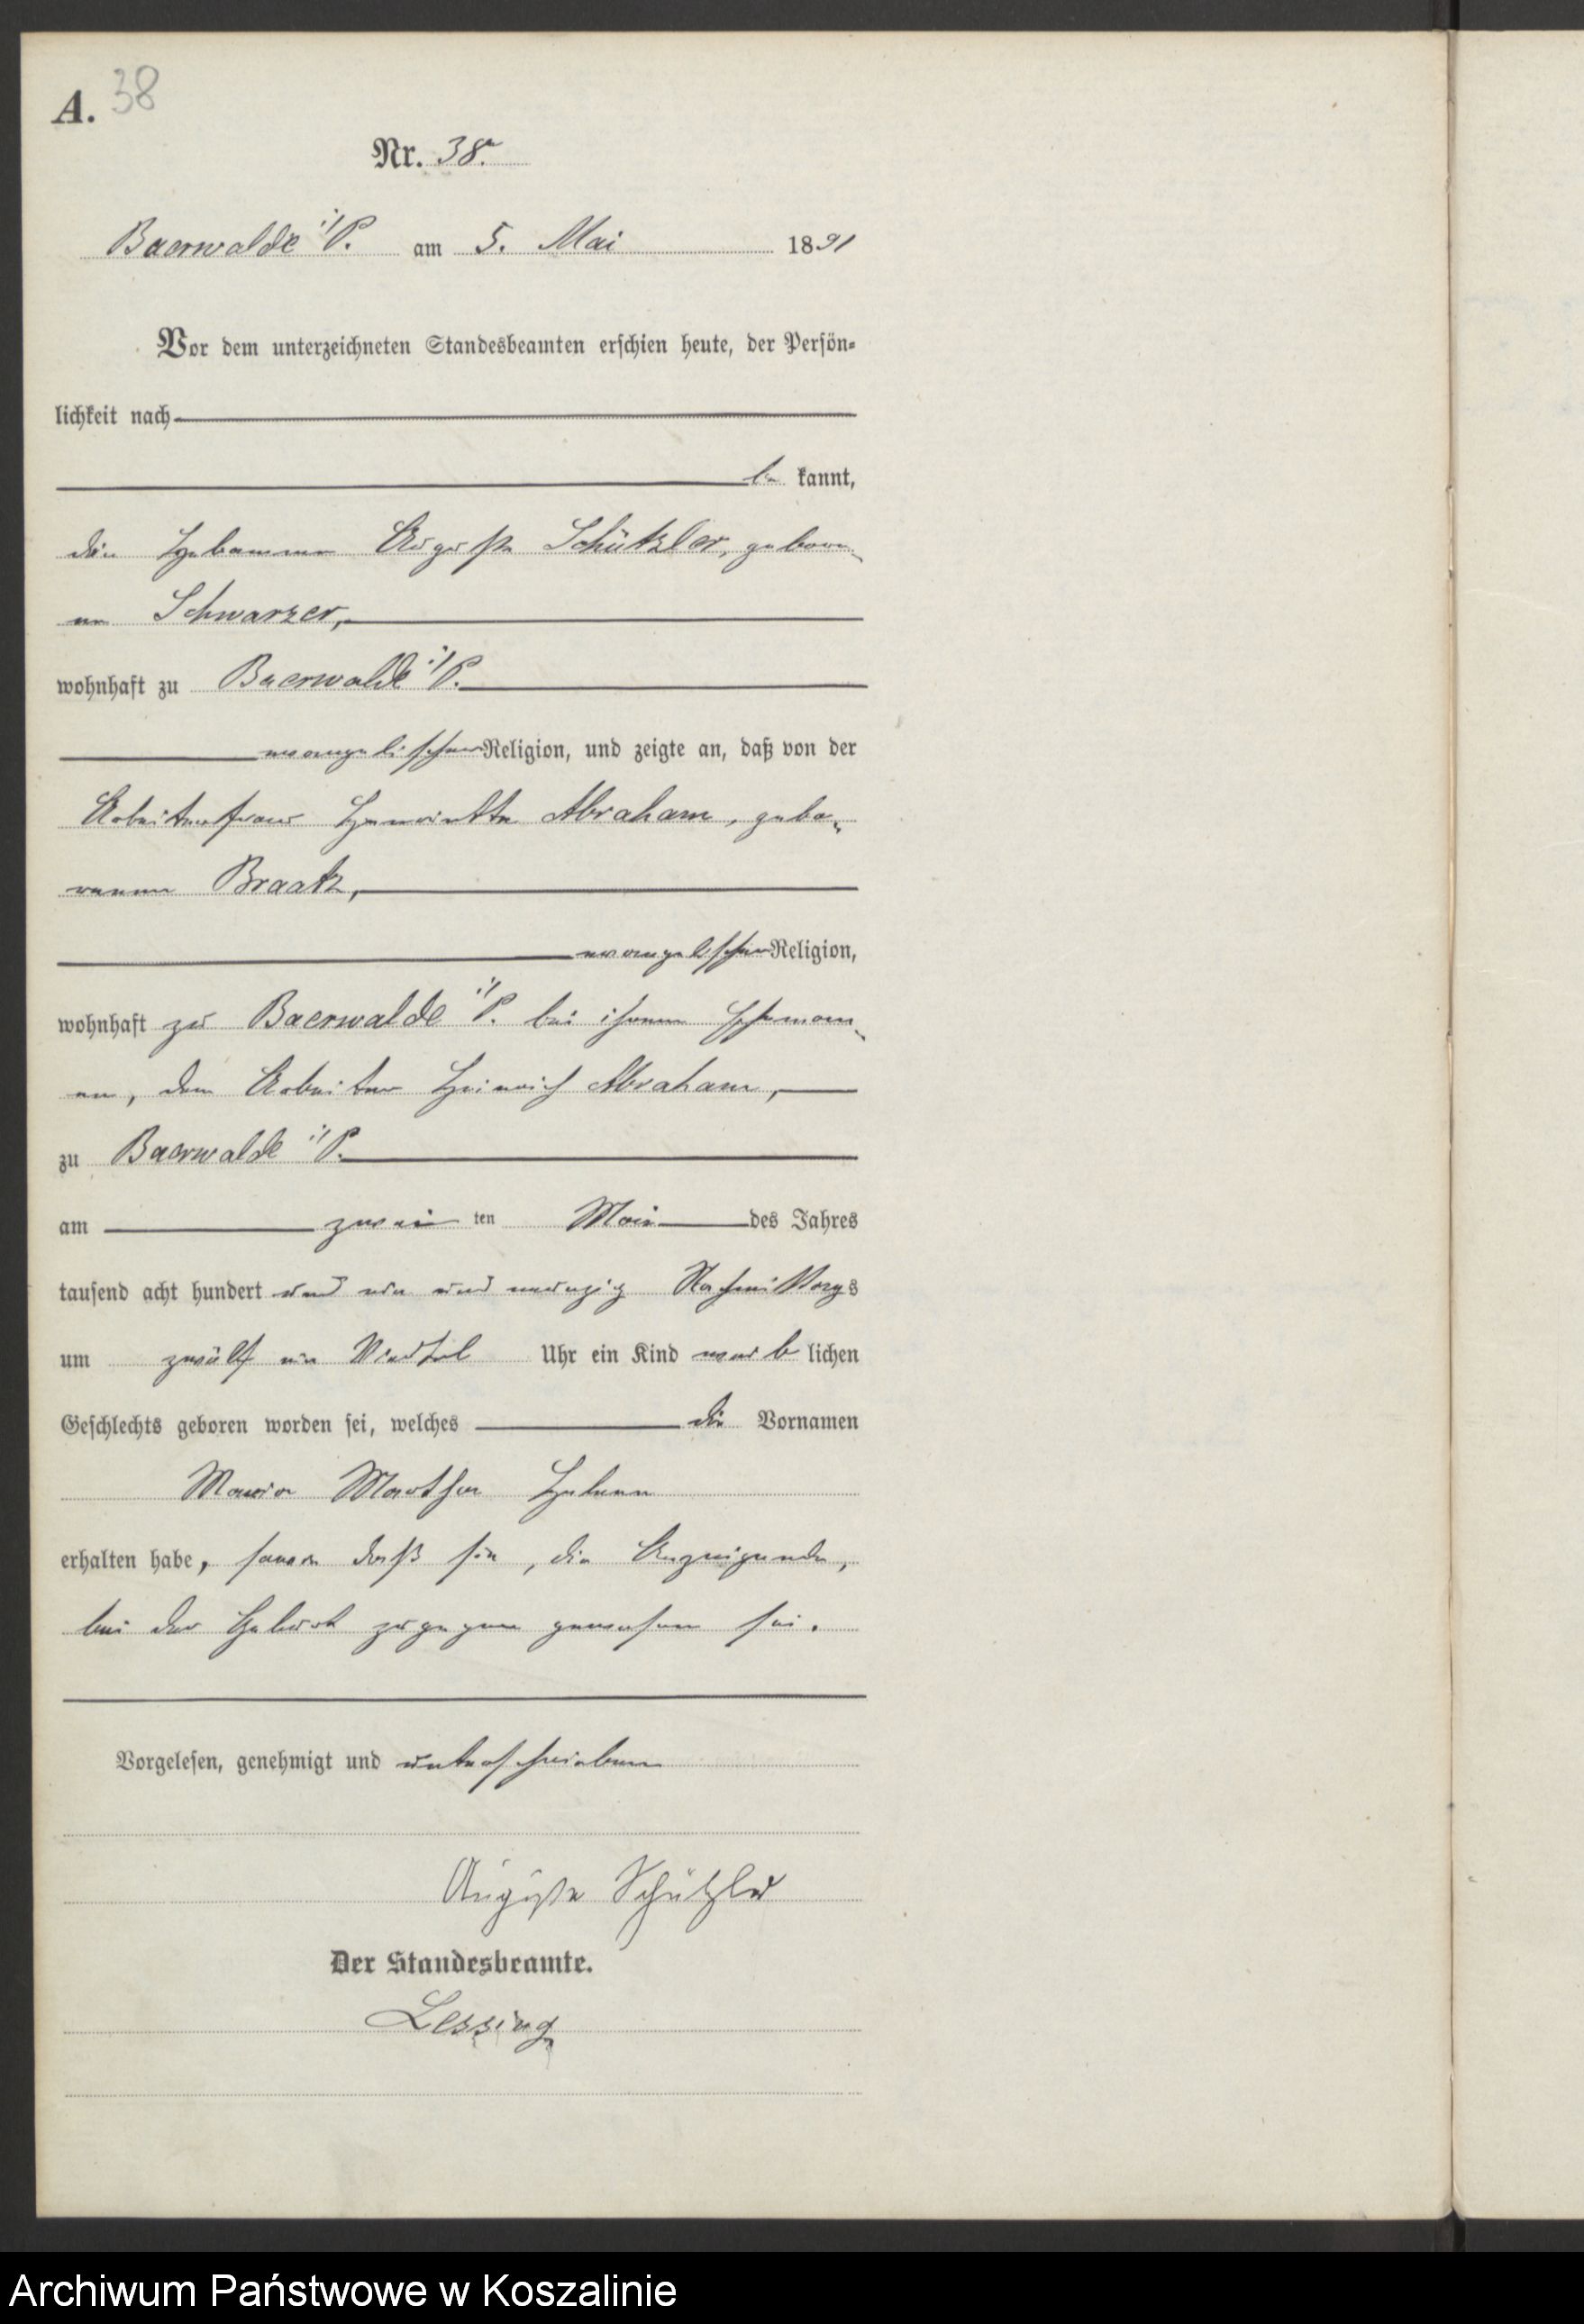 A. 38
Nr. 38.
Baerwalde i/P. am 5. Mai 1891
Vor dem unterzeichneten Standesbeamten erschien heute, der Persön-
lichkeit nach
be kannt,
die Hebamme Auguste Schützler, gebore-
ne Schwarzer,
wohnhaft zu Baerwalde i/P.
evangelischer Religion, und zeigte an, daß von der
Arbeiterfrau Henriette Abraham, gebo-
renen Braatz,
evangelischer Religion,
wohnhaft zu Baerwalde i/P. bei ihrem Ehemann-
en, dem Arbeiter Heinrich Abraham,
zu Baerwalde i/P.
am zwei ten Mai des Jahres
tausend acht hundert und ein und neunzig Nachmittags
um zwölf ein Viertel Uhr ein Kind weib lichen
Geschlechts geboren worden sei, welches die Vornamen
Maria Martha Helene
erhalten habe, daß sie, die Anzeigende,
bei der Geburt zugegen gewesen sei.
Vorgelesen, genehmigt und unterschrieben
Auguste Schützler
Der Standesbeamte.
Lessing
Archiwum Państwowe w Koszalinie